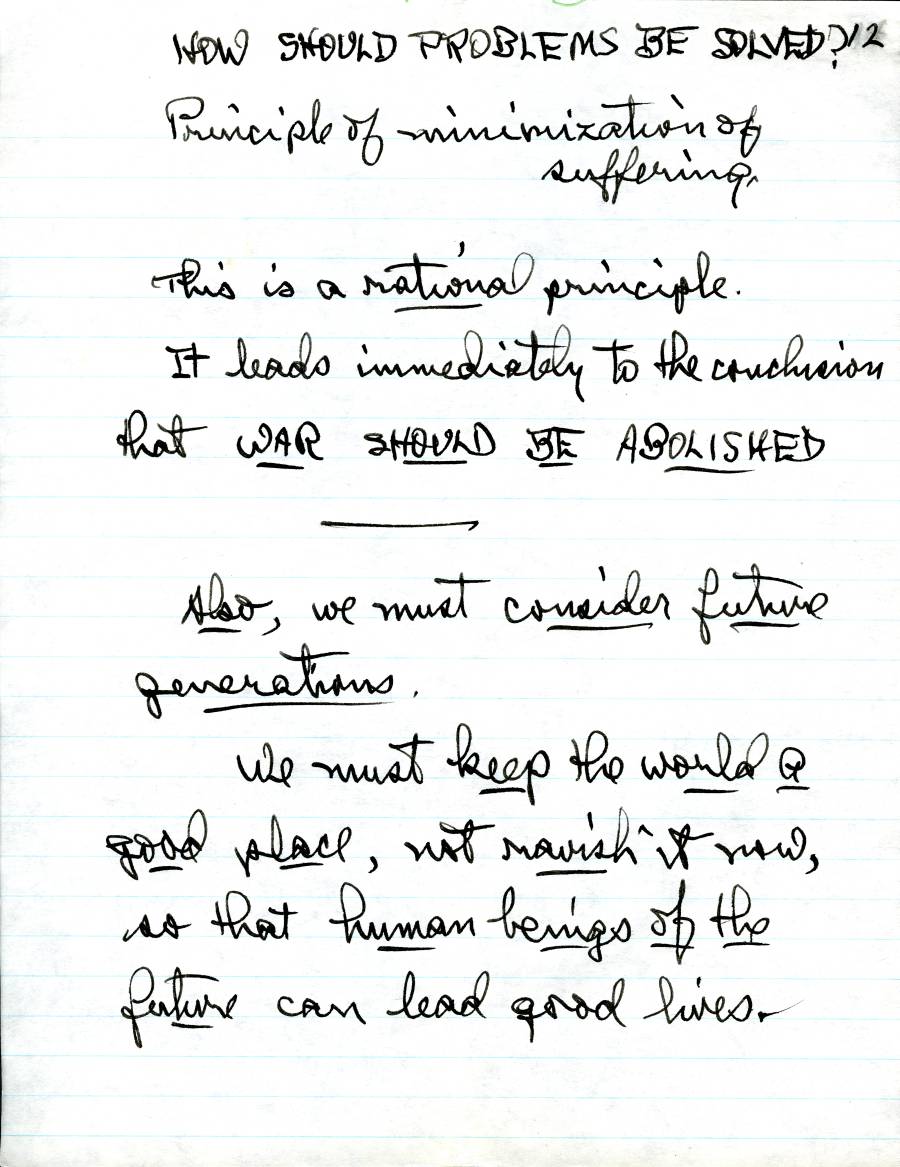 HOW SHOULD PROBLEMS BE SOLVED? 12
Principle of minimization of
suffering.
This is a rational principle.
It leads immediately to the conclusion
that WAR SHOULD BE ABOLISHED
Also, we must consider future
generations.
We must keep the world a
good place, not ravish it now,
so that human beings of the
future can lead good lives.